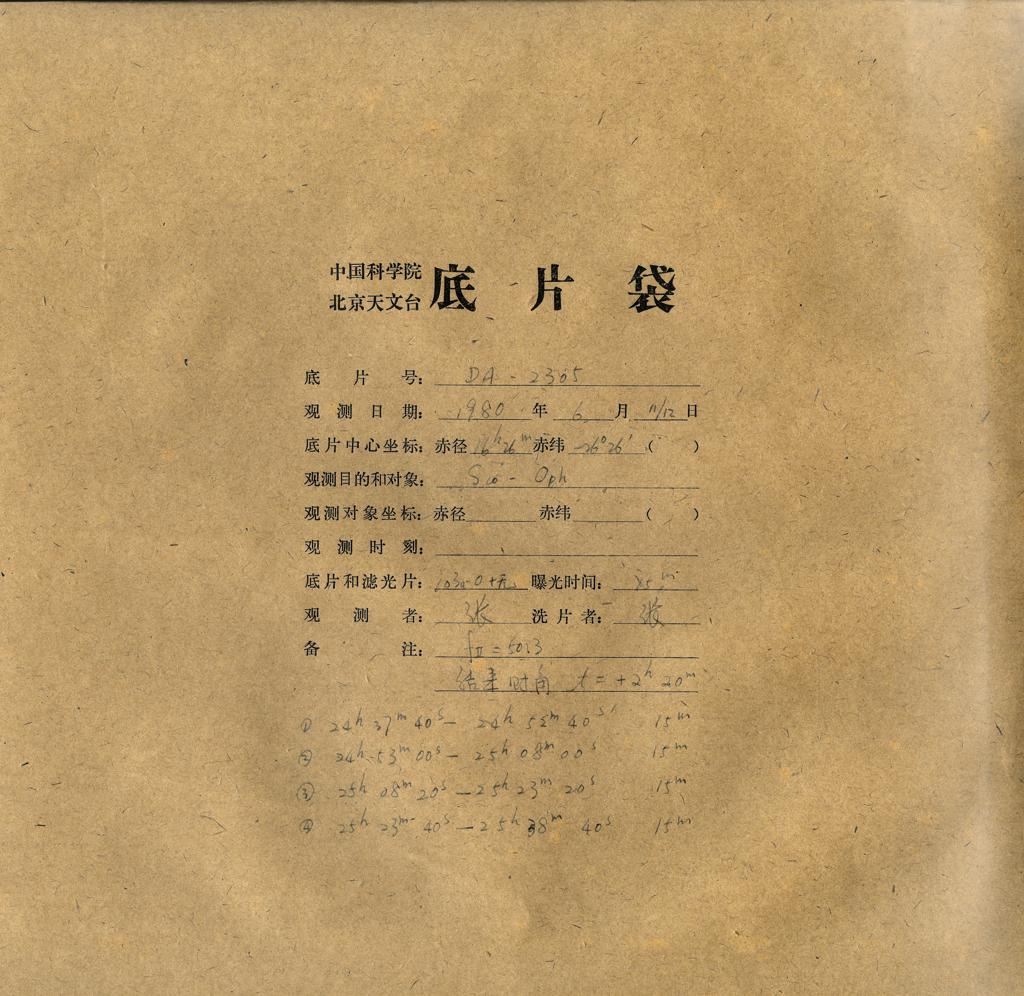 中国科学院
北京天文台
底片袋
底片号: DA-2305
观测日期: 1980年6月11/12日
底片中心坐标: 赤径16h26m赤纬-26°26′( )
观测目的和对象: Sco-Oph
观测对象坐标: 赤径 赤纬 ( )
观测时刻:
底片和滤光片: 103a-O+无 曝光时间: 15m
观测者: 张 洗片者: 张
备注: fII=50.3
结束时角 t=+2h 20m
① 24h 37m 40s — 24h 52m 40s 15m
② 24h 53m 00s — 25h 08m 00s 15m
③ 25h 08m 20s — 25h 23m 20s 15m
④ 25h 23m 40s — 25h 38m 40s 15m